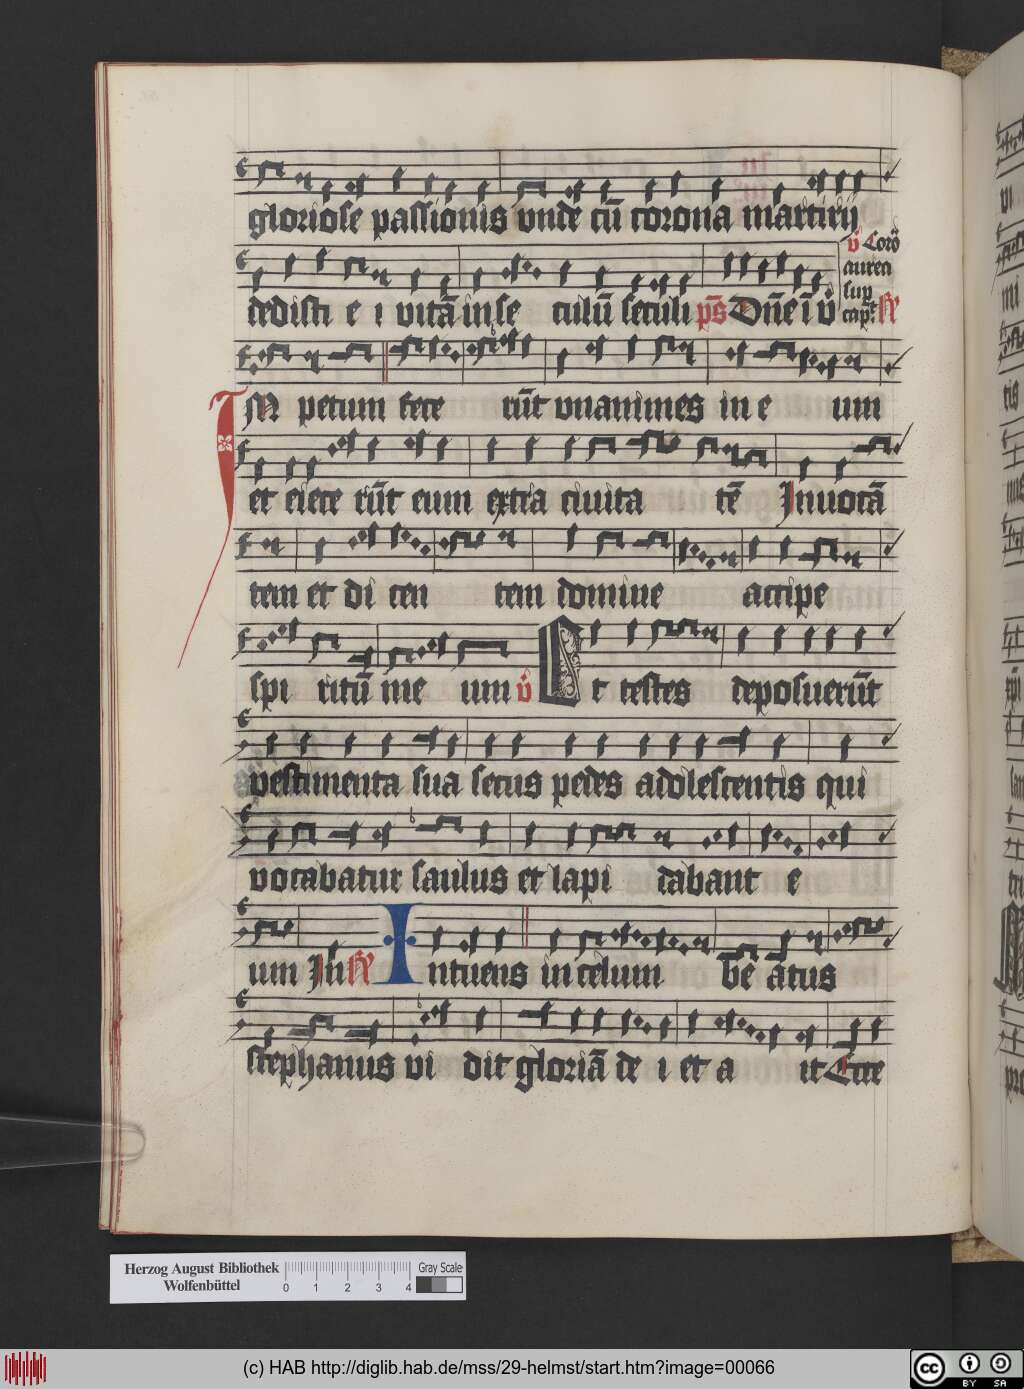 gloriose passionis vnde cū corona martirij
tedisti e i vitā in se culū seculi ps̄ Dn̄e ī v̊
v̊ Corō
aurea
sup
cap̄t
IM petum fece rūt vnanimes in e um
et eiece rūt eum extra ciuita tē Inuocā
tem et di cen tem domine accipe
spi ritū me um v̊ Et testes deposuerūt
vestimenta sua secus pedes adolescentis qui
vocabatur saulus et lapi dabant e
um In Intuens in celum be atus
stephanus vi dit gloriā de i et a it Ecce
Herzog August Bibliothek
Wolfenbüttel
0 1 2 3 4
Gray Scale
(c) HAB http://diglib.hab.de/mss/29-helmst/start.htm?image=00066
cc BY SA